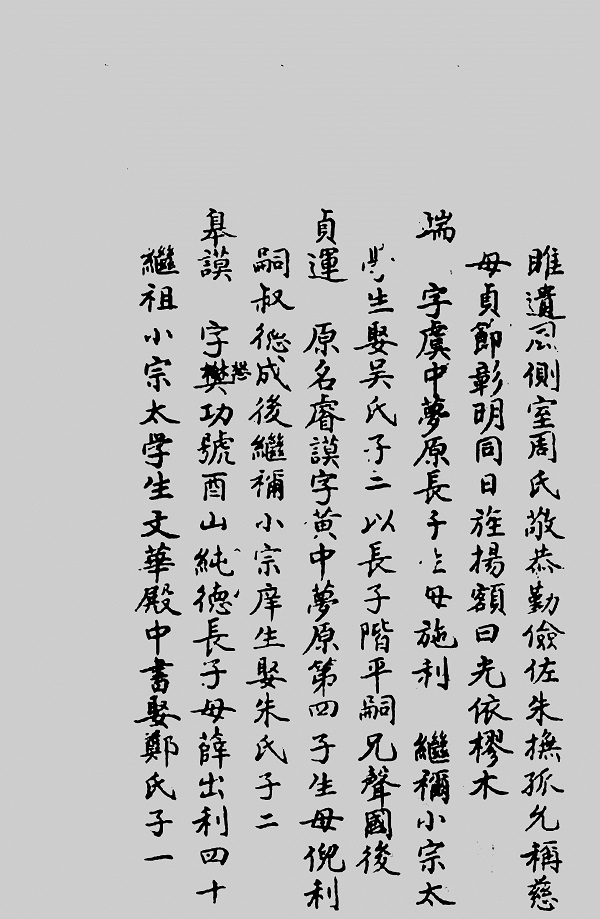 睢遺孤側室周氏敬恭勤儉佐朱撫孤允稱慈
母貞節彰明同日旌揚額曰光依樛木
瑞 字虞中夢原長子生母施利 繼禰小宗太
學生娶吳氏子二以長子階平嗣兄聲國後
貞運 原名睿謨字黃中夢原第四子生母倪利
嗣叔德成後繼禰小宗庠生娶朱氏子二
皋謨 字樊懋功號酉山純德長子母薛出利四十
繼祖小宗太学生文華殿中書娶鄭氏子一